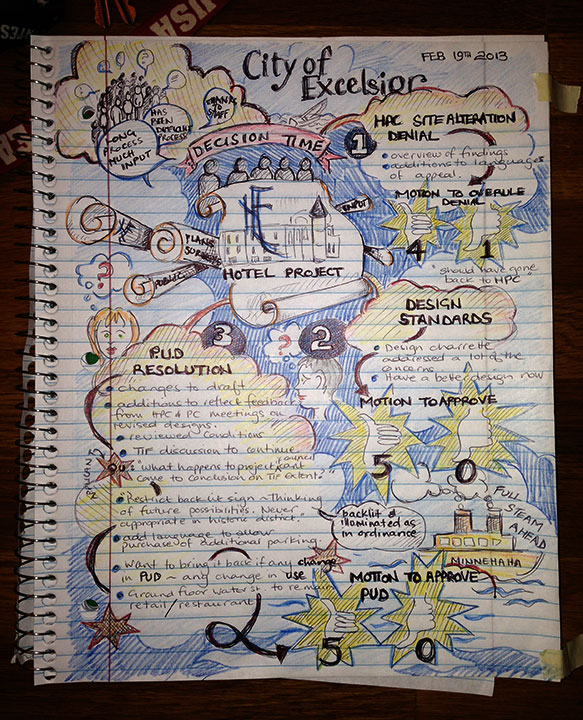 City of
Excelsior
FEB 19TH 2013
THANKS
TO
STAFF
HAS
BEEN
DIFFICULT
PROCESS
LONG
PROCESS
MUCH
INPUT
DECISION TIME
PLANS
SURVEYS
PUBLIC
INPUT
HE
HOTEL PROJECT
1
HPC SITE ALTERATION
DENIAL
• overview of findings
• additions to languages
of appeal.
MOTION TO OVERULE
DENIAL
4 1
"should have gone
back to HPC"
?
2
DESIGN
STANDARDS
• Design charrette
addressed a lot of the
concerns
• Have a better design now
MOTION TO APPROVE
5 0
?
3
PUD
RESOLUTION
• changes to draft
• additions to reflect feedback
from HPC & PC meetings on
revised designs.
• reviewed conditions
• TIF discussion to continue
Qu: "what happens to project if council can't
come to conclusion on TIF extents"
• Restrict backlit sign ~ Thinking
of future possibilities. Never
appropriate in historic district.
backlit &
illuminated as
in ordinance
• add language to allow
purchase of additional parking.
• Want to bring it back if any change
in PUD ~ any change in use
• Ground floor Water st to remain
retail / restaurant
FULL
STEAM
AHEAD
MINNEHAHA
MOTION TO APPROVE
PUD
5 0
USA